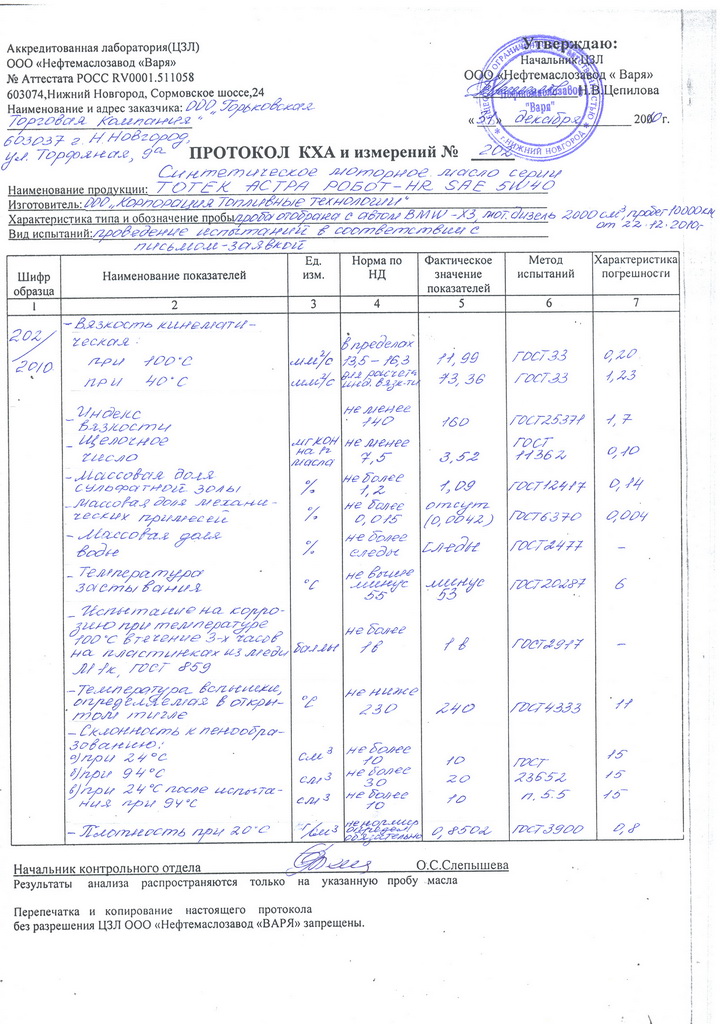 Аккредитованная лаборатория(ЦЗЛ)
ООО «Нефтемаслозавод «Варя»
№ Аттестата РОСС RV0001.511058
603074,Нижний Новгород, Сормовское шоссе,24
Наименование и адрес заказчика: ООО "Горьковская
Торговая Кампания"
603037 г. Н.Новгород,
ул. Торфяная,
Утверждаю:
Начальник ЦЗЛ
ООО «Нефтемаслозавод « Варя»
Н.В.Цепилова
«31» декабря 2010г.
"Варя"
г.НИЖНИЙ НОВГОРОД
ПРОТОКОЛ КХА и измерений № 202
Синтетическое моторное масло серии
Наименование продукции: ТОТЕК АСТРА РОБОТ-HR SAE 5W40
Изготовитель: ООО „Корпорация Топливные технологии"
Характеристика типа и обозначение пробы: проба отобрана с автом BMW-X3, мот. дизель 2000 см³, пробег 10000 км
от 22.12.2010,-
Вид испытаний: проведение испытаний в соответствии с
письмом-заявкой
Шифр образца Наименование показателей Ед. изм. Норма по НД Фактическое значение показателей Метод испытаний Характеристика погрешности
1 2 3 4 5 6 7
202/2010
- Вязкость кинемати-
ческая: в пределах
при 100°С мм²/с 13,5 – 16,3 11,99 ГОСТ33 0,20
при 40°С мм²/с для расчета инд. вязк-ти 73,36 ГОСТ33 1,23
- Индекс не менее
вязкости 140 160 ГОСТ25371 1,7
- Щелочное мг КОН не менее ГОСТ
число на 1г масла 7,5 3,52 11362 0,10
- Массовая доля не более
сульфатной золы % 1,2 1,09 ГОСТ12417 0,14
- Массовая доля механи- не более отсут
ческих примесей % 0,015 (0,0042) ГОСТ6370 0,004
- Массовая доля не более
воды % следы следы ГОСТ2477 –
- Температура не выше минус
застывания °С минус 55 53 ГОСТ20287 6
- Испытание на корро-
зию при температуре
100°С в течение 3-х часов не более
на пластинках из меди баллы 1в 1в ГОСТ2917 –
М1к, ГОСТ 859
- Температура вспышки, не ниже
определяемая в откры- °С 230 240 ГОСТ4333 11
том тигле
- Склонность к пенообра-
зованию: не более
а) при 24°С см³ 10 10 ГОСТ 15
б) при 94°С см³ не более 30 20 23652 15
в) при 24°С после испыта- см³ не более 10 10 п. 5.5 15
ния при 94°С
- Плотность при 20°С г/см³ 0,8502 ГОСТ3900 0,8
Начальник контрольного отдела О.С.Слепышева
Результаты анализа распространяются только на указанную пробу масла
Перепечатка и копирование настоящего протокола
без разрешения ЦЗЛ ООО «Нефтемаслозавод «ВАРЯ» запрещены.